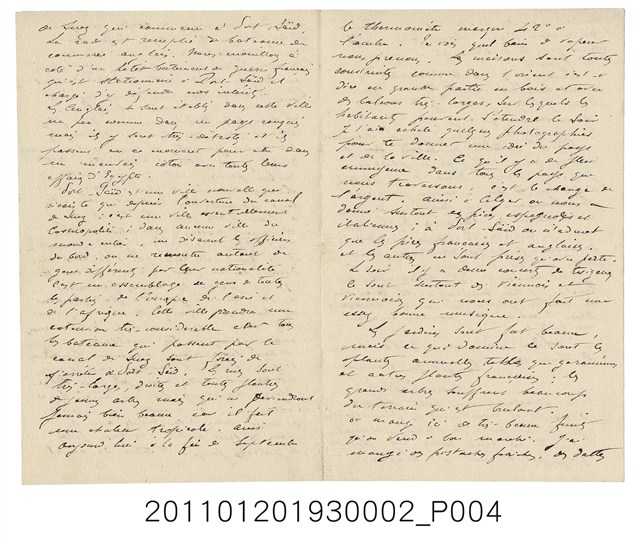 de Suez qui commence à Port Saïd.
La rade est remplie de bateaux de
commerce anglais. Nous mouillons à
côté d'un petit bâtiment de guerre français
qui est stationnaire à Port Saïd et
chargé d'y defendre nos intérêts.
Les Anglais se sont établis dans cette ville
un peu comme dans un pays conquis
mais ils y sont très détestés et ils
passent en ce moment pour être dans
un mauvais coton avec toutes leurs
affaires d'Egypte.
Port Saïd est une ville nouvelle qui
n'existe que depuis l'ouverture du canal
de Suez ; c'est une ville essentiellement
cosmopolite ; dans aucune ville du
monde entier, me disaient les officiers
du bord, on ne rencontre autant de
gens différents par leur nationalité
c'est un assemblage de gens de toutes
les parties de l'Europe de l'Asie et
de l'Afrique. Cette ville prendra une
extension très considérable car tous
les bateaux qui passent par le
canal de Suez sont forcés de
s'arrêter à Port Saïd. Les rues sont
très larges, droites et toutes plantées
de jeunes arbres mais qui ne deviendront
jamais bien beaux car il fait
une chaleur tropicale. Ainsi
aujourd'hui à la fin de Septembre
le thermomètre marque 42° à
l'ombre. Tu vois quel bain de vapeur
nous prenons. Les maisons sont toutes
construites comme dans l'orient c'est à
dire en grande partie en bois et avec
des balcons très larges, sur lesquels les
habitants peuvent s'étendre le soir.
Je t'ai acheté quelques photographies
pour te donner une idée du pays
et de la ville. Ce qu'il y a de plus
ennuyeux dans tous les pays que
nous traversons, c'est le change de
l'argent. Ainsi à Alger on nous a
donné surtout des pièces espagnoles et
italiennes ; à Port Saïd on n'admet
que les pièces françaises et anglaises.
et les autres ne sont prises qu'avec perte.
Le soir il y a deux concerts de tsiganes
ce sont surtout des Viennois et
Viennoises qui nous ont fait une
assez bonne musique.
Les jardins sont fort beaux,
mais ce qui domine ce sont les
plantes annuelles telles que geraniums
et autres plantes françaises ; les
grands arbres souffrent beaucoup
du terrain qui est brulant.
on mange ici de très beaux fruits
qu'on vend à bon marché. J'ai
mangé des pistaches fraîches, des dattes